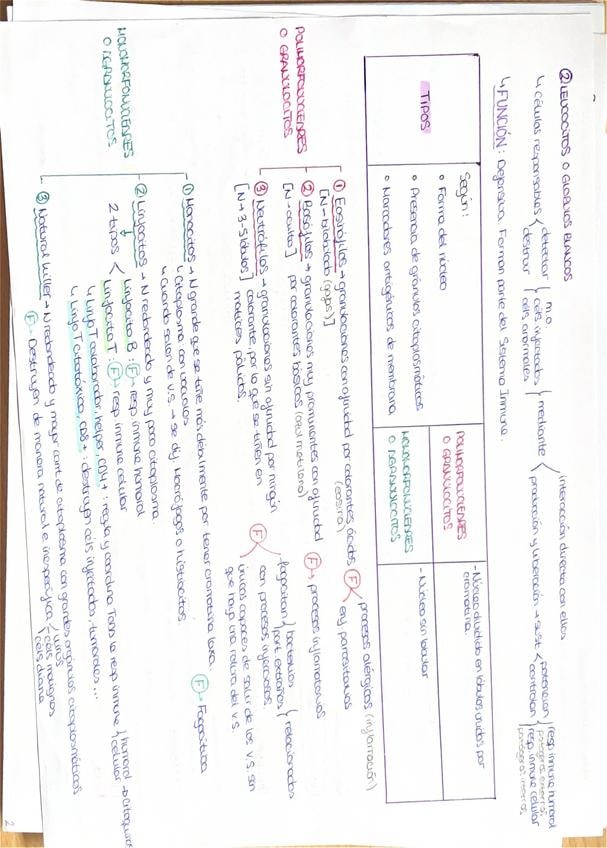 ② LEUCOCITOS O GLÓBULOS BLANCOS
↳ células responsables < detectar destruir { m.o. céls infectadas céls anormales } mediante < interacción directa con ellos
producción y liberación → sust < potencian controlan { resp. inmune humoral patógenos externos resp. inmune celular patógenos internos
↳ FUNCIÓN: Defensiva. Forman parte del Sistema Inmune.
TIPOS
Según:
o Forma del núcleo
o Presencia de gránulos citoplasmáticos
o Marcadores antigénicos de membrana
POLIMORFONUCLEARES
O GRANULOCITOS
- Núcleo dividido en lóbulos unidos por
cromatina.
MONOMORFONUCLEARES
O AGRANULOCITOS
- Núcleo sin lobular
POLIMORFONUCLEARES
O GRANULOCITOS
① Eosinófilos → granulaciones con afinidad por colorantes ácidos (eosina)
[N-bilobulado (gafas)]
F < procesos alérgicos (inflamación)
enf parasitarias
② Basófilos → granulaciones muy prominentes con afinidad
[N-oculto] por colorantes básicos (azul metileno)
F → procesos inflamatorios
③ Neutrófilos → granulaciones sin afinidad por ningún
[N → 3-5 lóbulos] colorante, por lo que se tiñen en
matices pálidos.
F < fagocitan { bacterias part. extrañas } relacionados
con procesos infecciosos.
únicos capaces de salir de los v.s. sin
que haya una rotura del v.s.
MONOMORFONUCLEARES
O AGRANULOCITOS
① Monocitos → N grande que se tiñe más débilmente por tener cromatina laxa.
↳ citoplasma con vacuolas
↳ cuando salen de v.s. → se dif. Macrófagos o histiocitos
F → Fagocitosis
② Linfocitos → N redondeado y muy poco citoplasma.
2 tipos < Linfocito B: F → resp inmune humoral
Linfocito T: F → resp inmune celular
↳ Linfo T colaborador, helper, CD4+: regula y coordina toda la resp inmune { humoral → citoquinas celular
↳ Linfo T citotóxico, CD8+: destruyen céls infectadas, tumorales...
③ Natural Killer → N redondeado y mayor cant de citoplasma con grandes orgánulos citoplasmáticos
F → Destruyen de manera natural e inespecífica { virus céls malignas céls diana
2